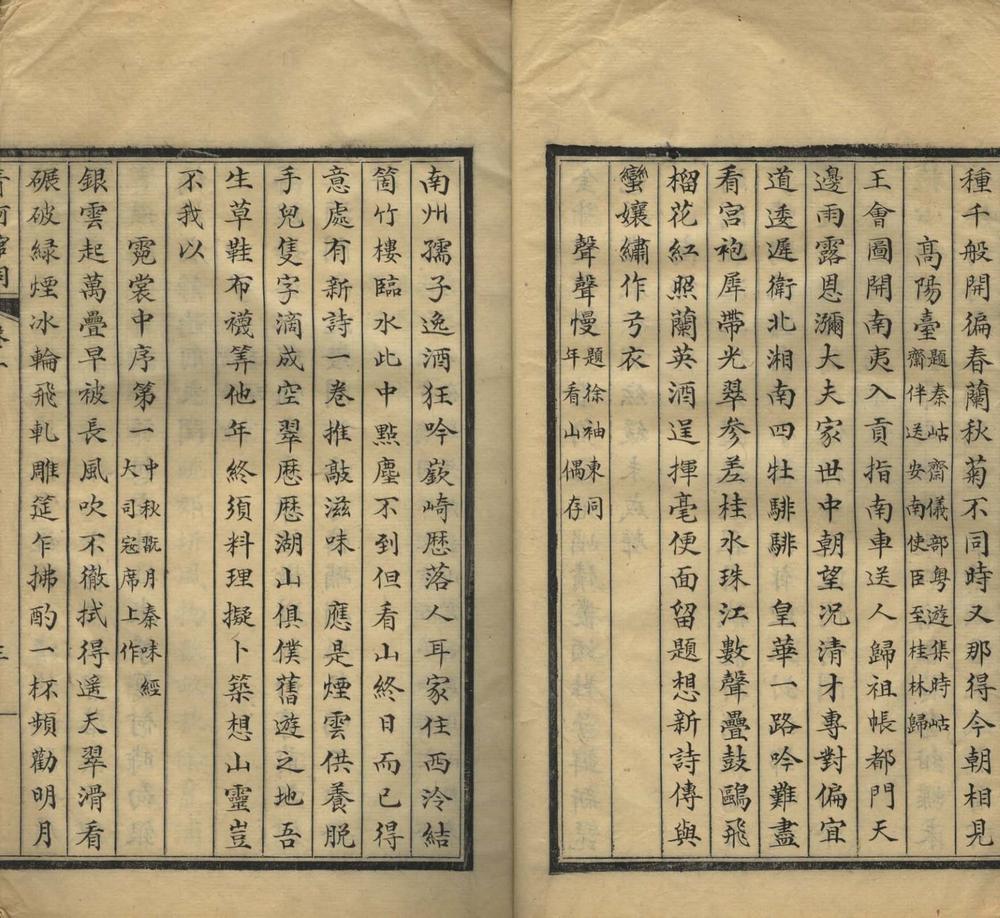 種千般開徧春蘭秋菊不同時又那得今朝相見
高陽臺題秦岵齋儀部粤遊集時岵
齋伴送安南使臣至桂林歸
王會圖開南夷入貢指南車送人歸祖帳都門天
邊雨露恩瀰大夫家世中朝望况清才專對偏宜
道逶遲衛北湘南四牡騑騑 皇華一路吟難盡
看宮袍犀帶光翠參差桂水珠江數聲疊鼓鷗飛
榴花紅照蘭英酒逞揮毫便面留題想新詩傳與
蠻孃繡作弓衣
聲聲慢題徐袖東同
年看山偶存
南州孺子逸酒狂吟嶔崎歴落人耳家住西泠結
箇竹樓臨水此中㸃塵不到但看山終日而已得
意處有新詩一卷推敲滋味 應是煙雲供養脱
手兒隻字滴成空翠歴歴湖山俱僕舊遊之地吾
生草鞋布襪筭他年終須料理擬卜築想山靈豈
不我以
霓裳中序第一中秋翫月秦味經
大司寇席上作
銀雲起萬疊早被長風吹不徹拭得遥天翠滑看
碾破緑煙冰輪飛軋雕筵乍拂酌一杯頻勸明月